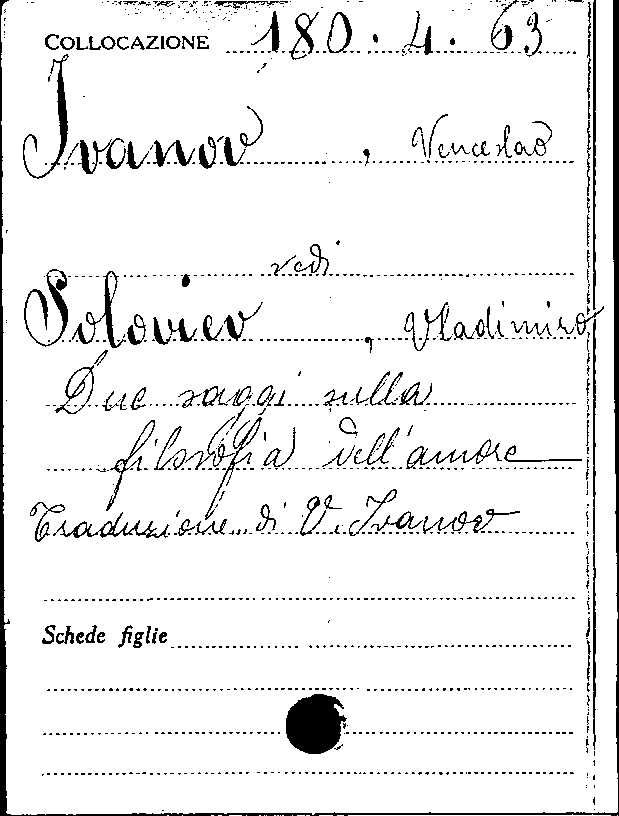 COLLOCAZIONE 180.4.63
Ivanov, Venceslao
vedi
Soloviev, Vladimiro
Due saggi sulla
filosofia dell'amore
Traduzione di V. Ivanov
Schede figlie